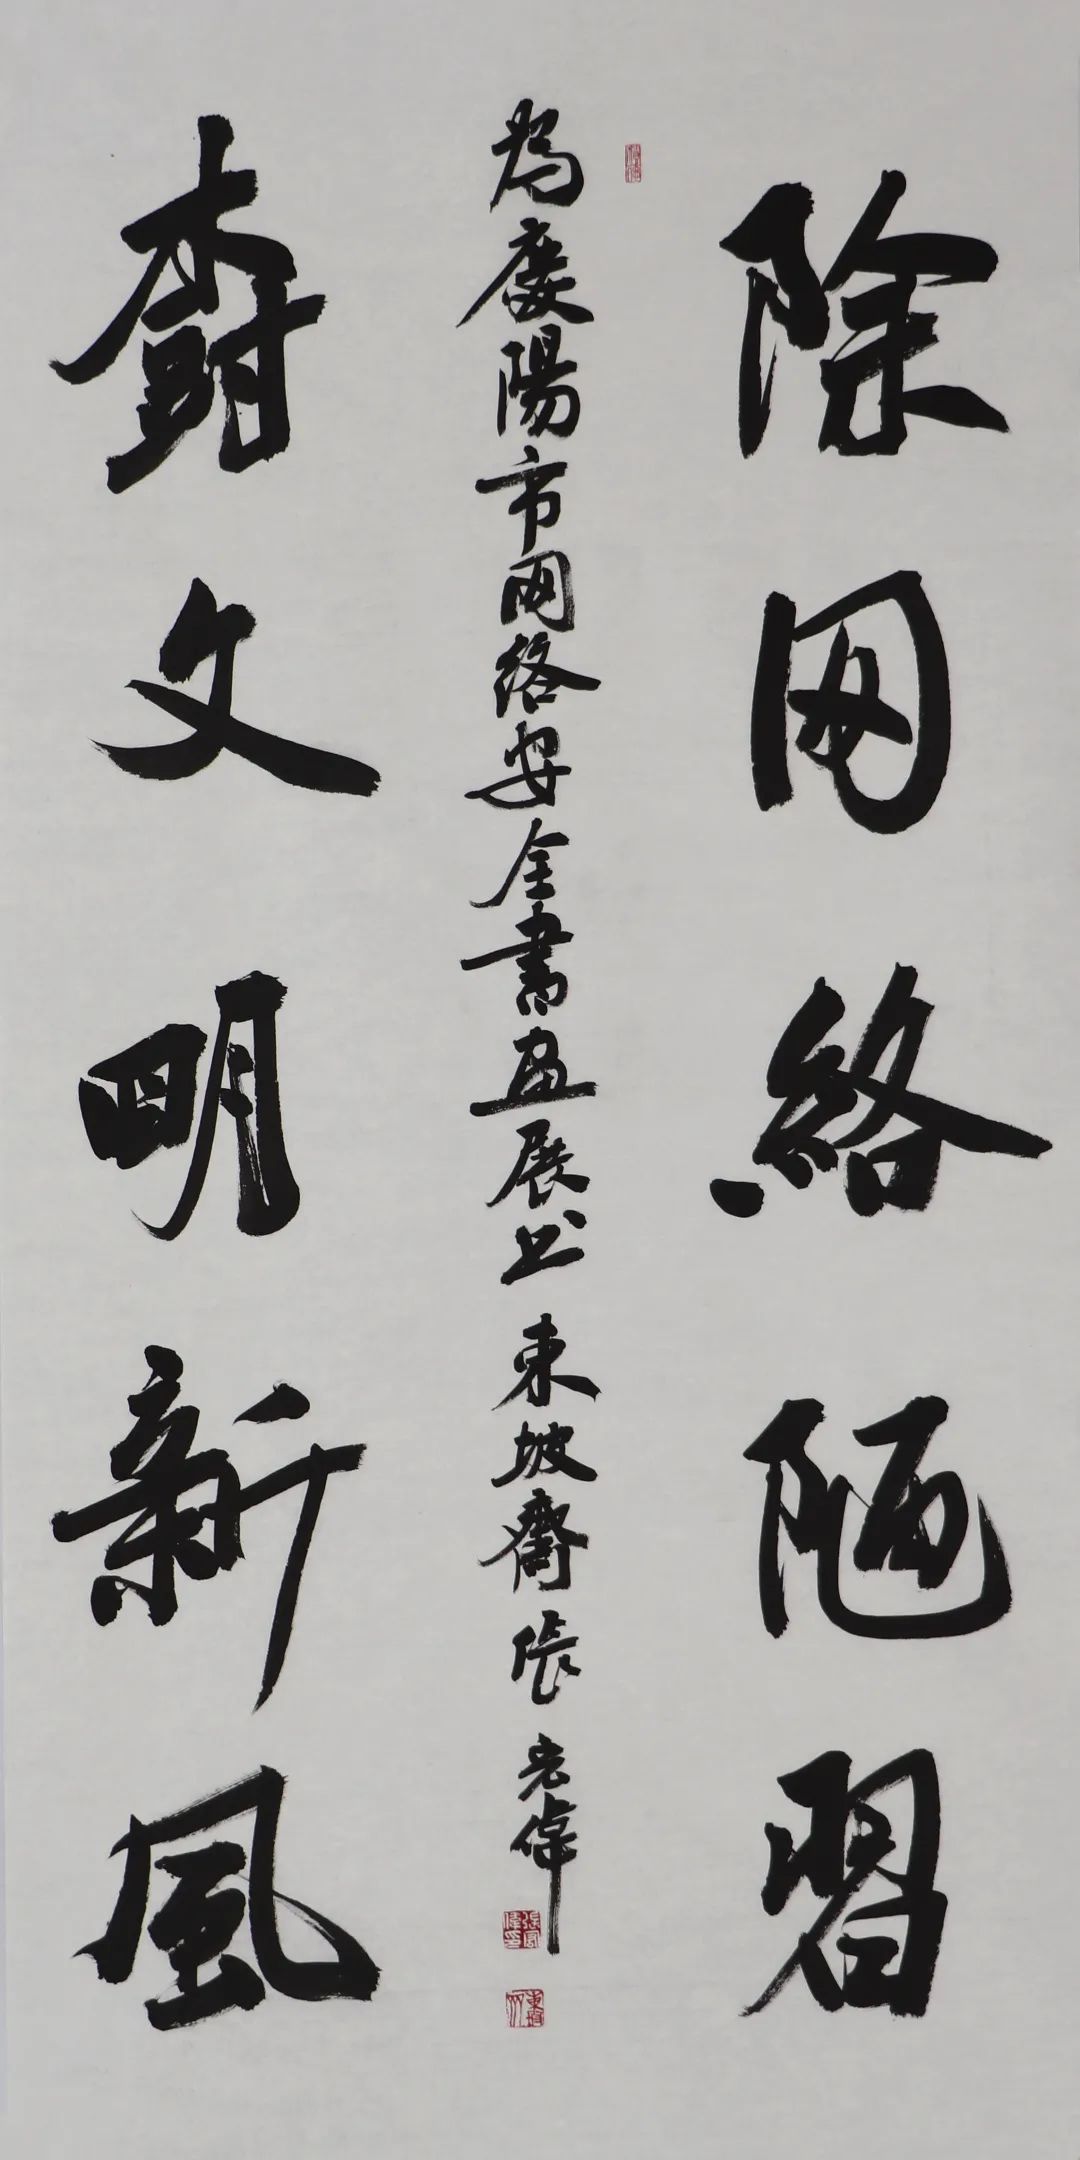 除网絡陋習
為慶陽市网絡安全書畫展书 東坡齋張偉
樹文明新風